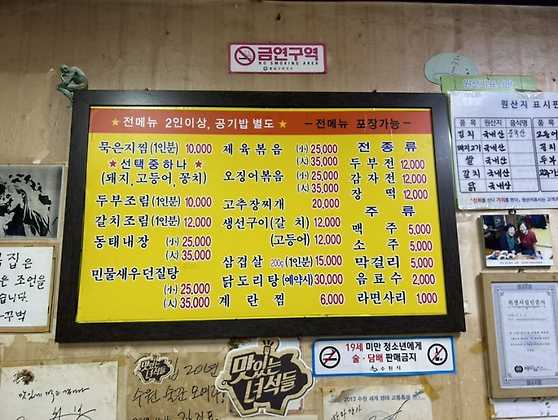 금연구역
NO SMOKING AREA
★ 전메뉴 2인이상, 공기밥 별도 ★ - 전메뉴 포장가능 -
묵은지찜 (1인분) 10,000
★ 선택중하나 ★
(돼지, 고등어, 꽁치)
두부조림 (1인분) 10,000
갈치조림 (1인분) 12,000
동태내장 (小) 25,000
(大) 35,000
민물새우던질탕
(小) 25,000
(大) 35,000
제육볶음 (小) 25,000
(大) 35,000
오징어볶음 (小) 25,000
(大) 35,000
고추장찌개 20,000
생선구이 (갈치) 12,000
(고등어) 12,000
삼겹살 200g (1인분) 15,000
닭도리탕 (예약시) 30,000
계란찜 6,000
전종류
두부전 12,000
감자전 12,000
장떡 12,000
주류
맥주 5,000
소주 5,000
막걸리 5,000
음료수 2,000
라면사리 1,000
원산지 표시판
품목 원산지 음식명 품목
김치 국내산
돼지고기 국내산
쌀 국내산
김치 국내산
닭 국내산
집은
조언을
습니다.
-꾸벅
맛있는
녀석들
맛있는
녀석들
19세 미만 청소년에게
술·담배 판매금지
수원시